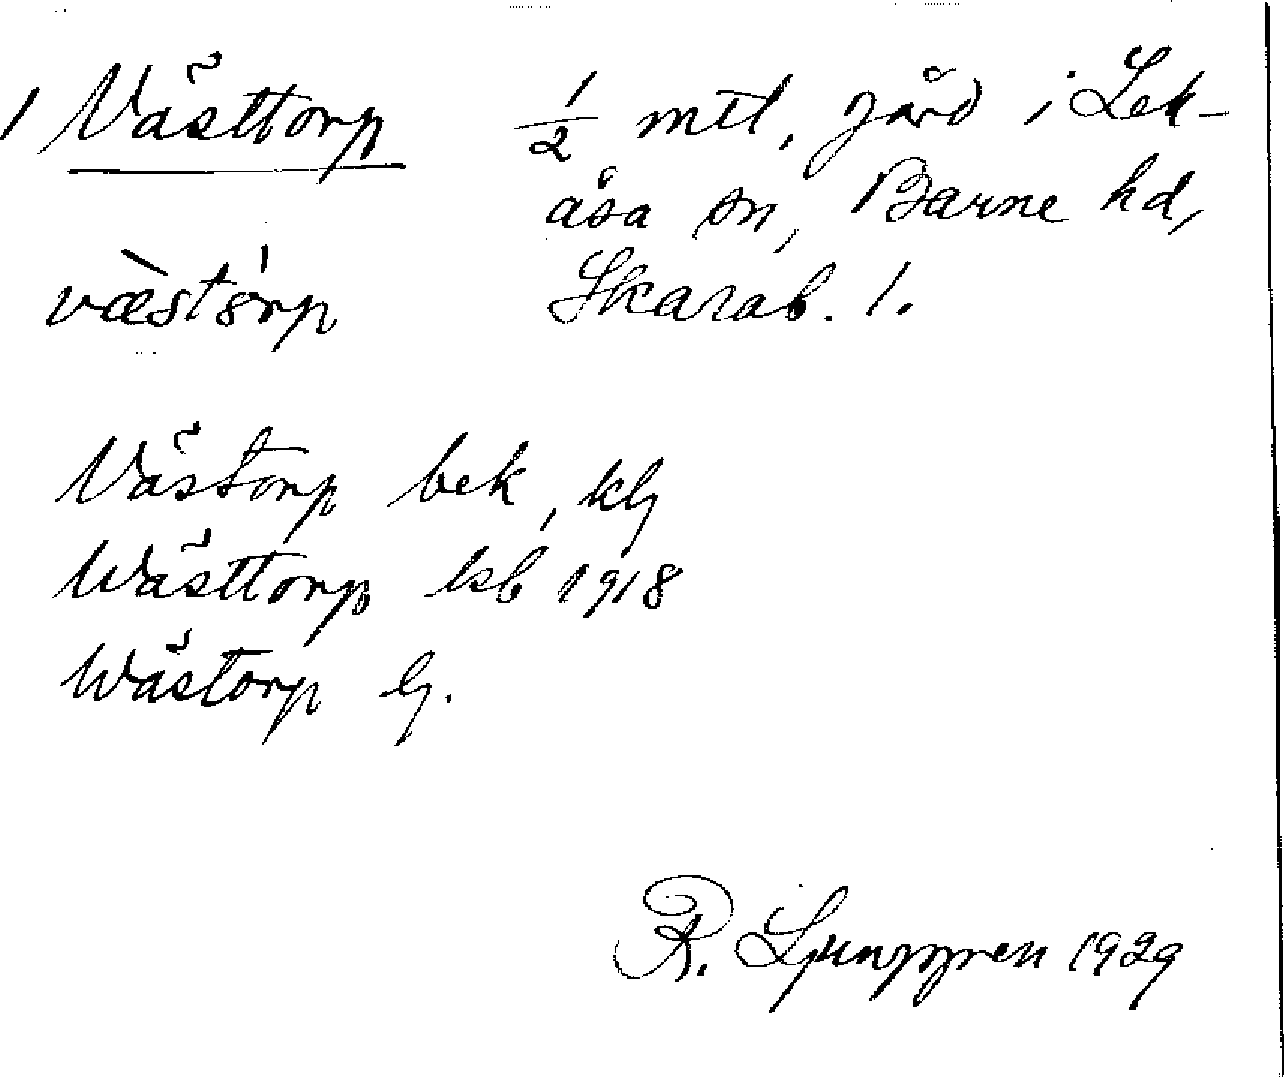 1 Västtorp ½ mtl, gård i Lek-
åsa sn, Barne hd,
væ̀stórp Skarab. l.
Västorp bek, klj
Wästtorp ksb 1918
Wästorp lj.
R. Ljunggren 1929